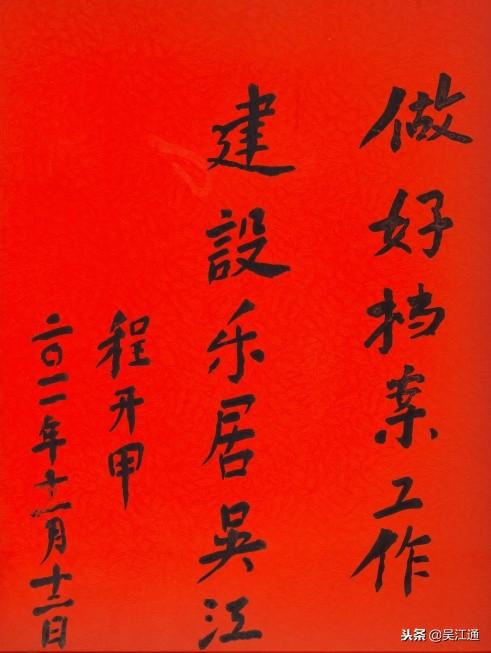 做好档案工作
建設乐居吳江
程开甲
二〇一一年十一月十二日
头条@吴江通